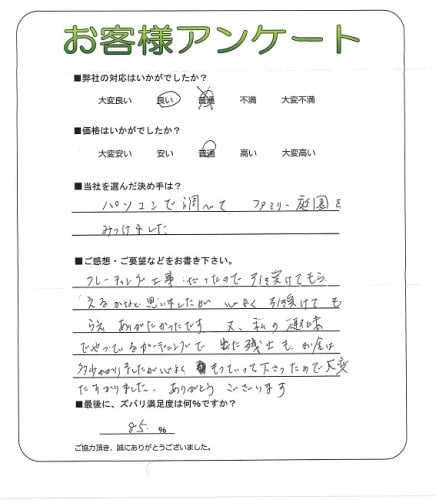 お客様アンケート
■弊社の対応はいかがでしたか？
大変良い 良い 普通 不満 大変不満
■価格はいかがでしたか？
大変安い 安い 普通 高い 大変高い
■当社を選んだ決め手は？
パソコンで調べて ファミリー庭園を
みつけました
■ご感想・ご要望などをお書き下さい。
グレーチング工事だったので引き受けてもら
えるかなと思いましたが 心よく 引受けても
らえ ありがたかったです 又、私の趣味
でやっているガーデニングで 出た残土も、お金は
多少かかりましたが心よく もっていって下さったので大変
たすかりました、ありがとう ございます
■最後に、ズバリ満足度は何%ですか？
85. %
ご協力頂き、誠にありがとうございました。